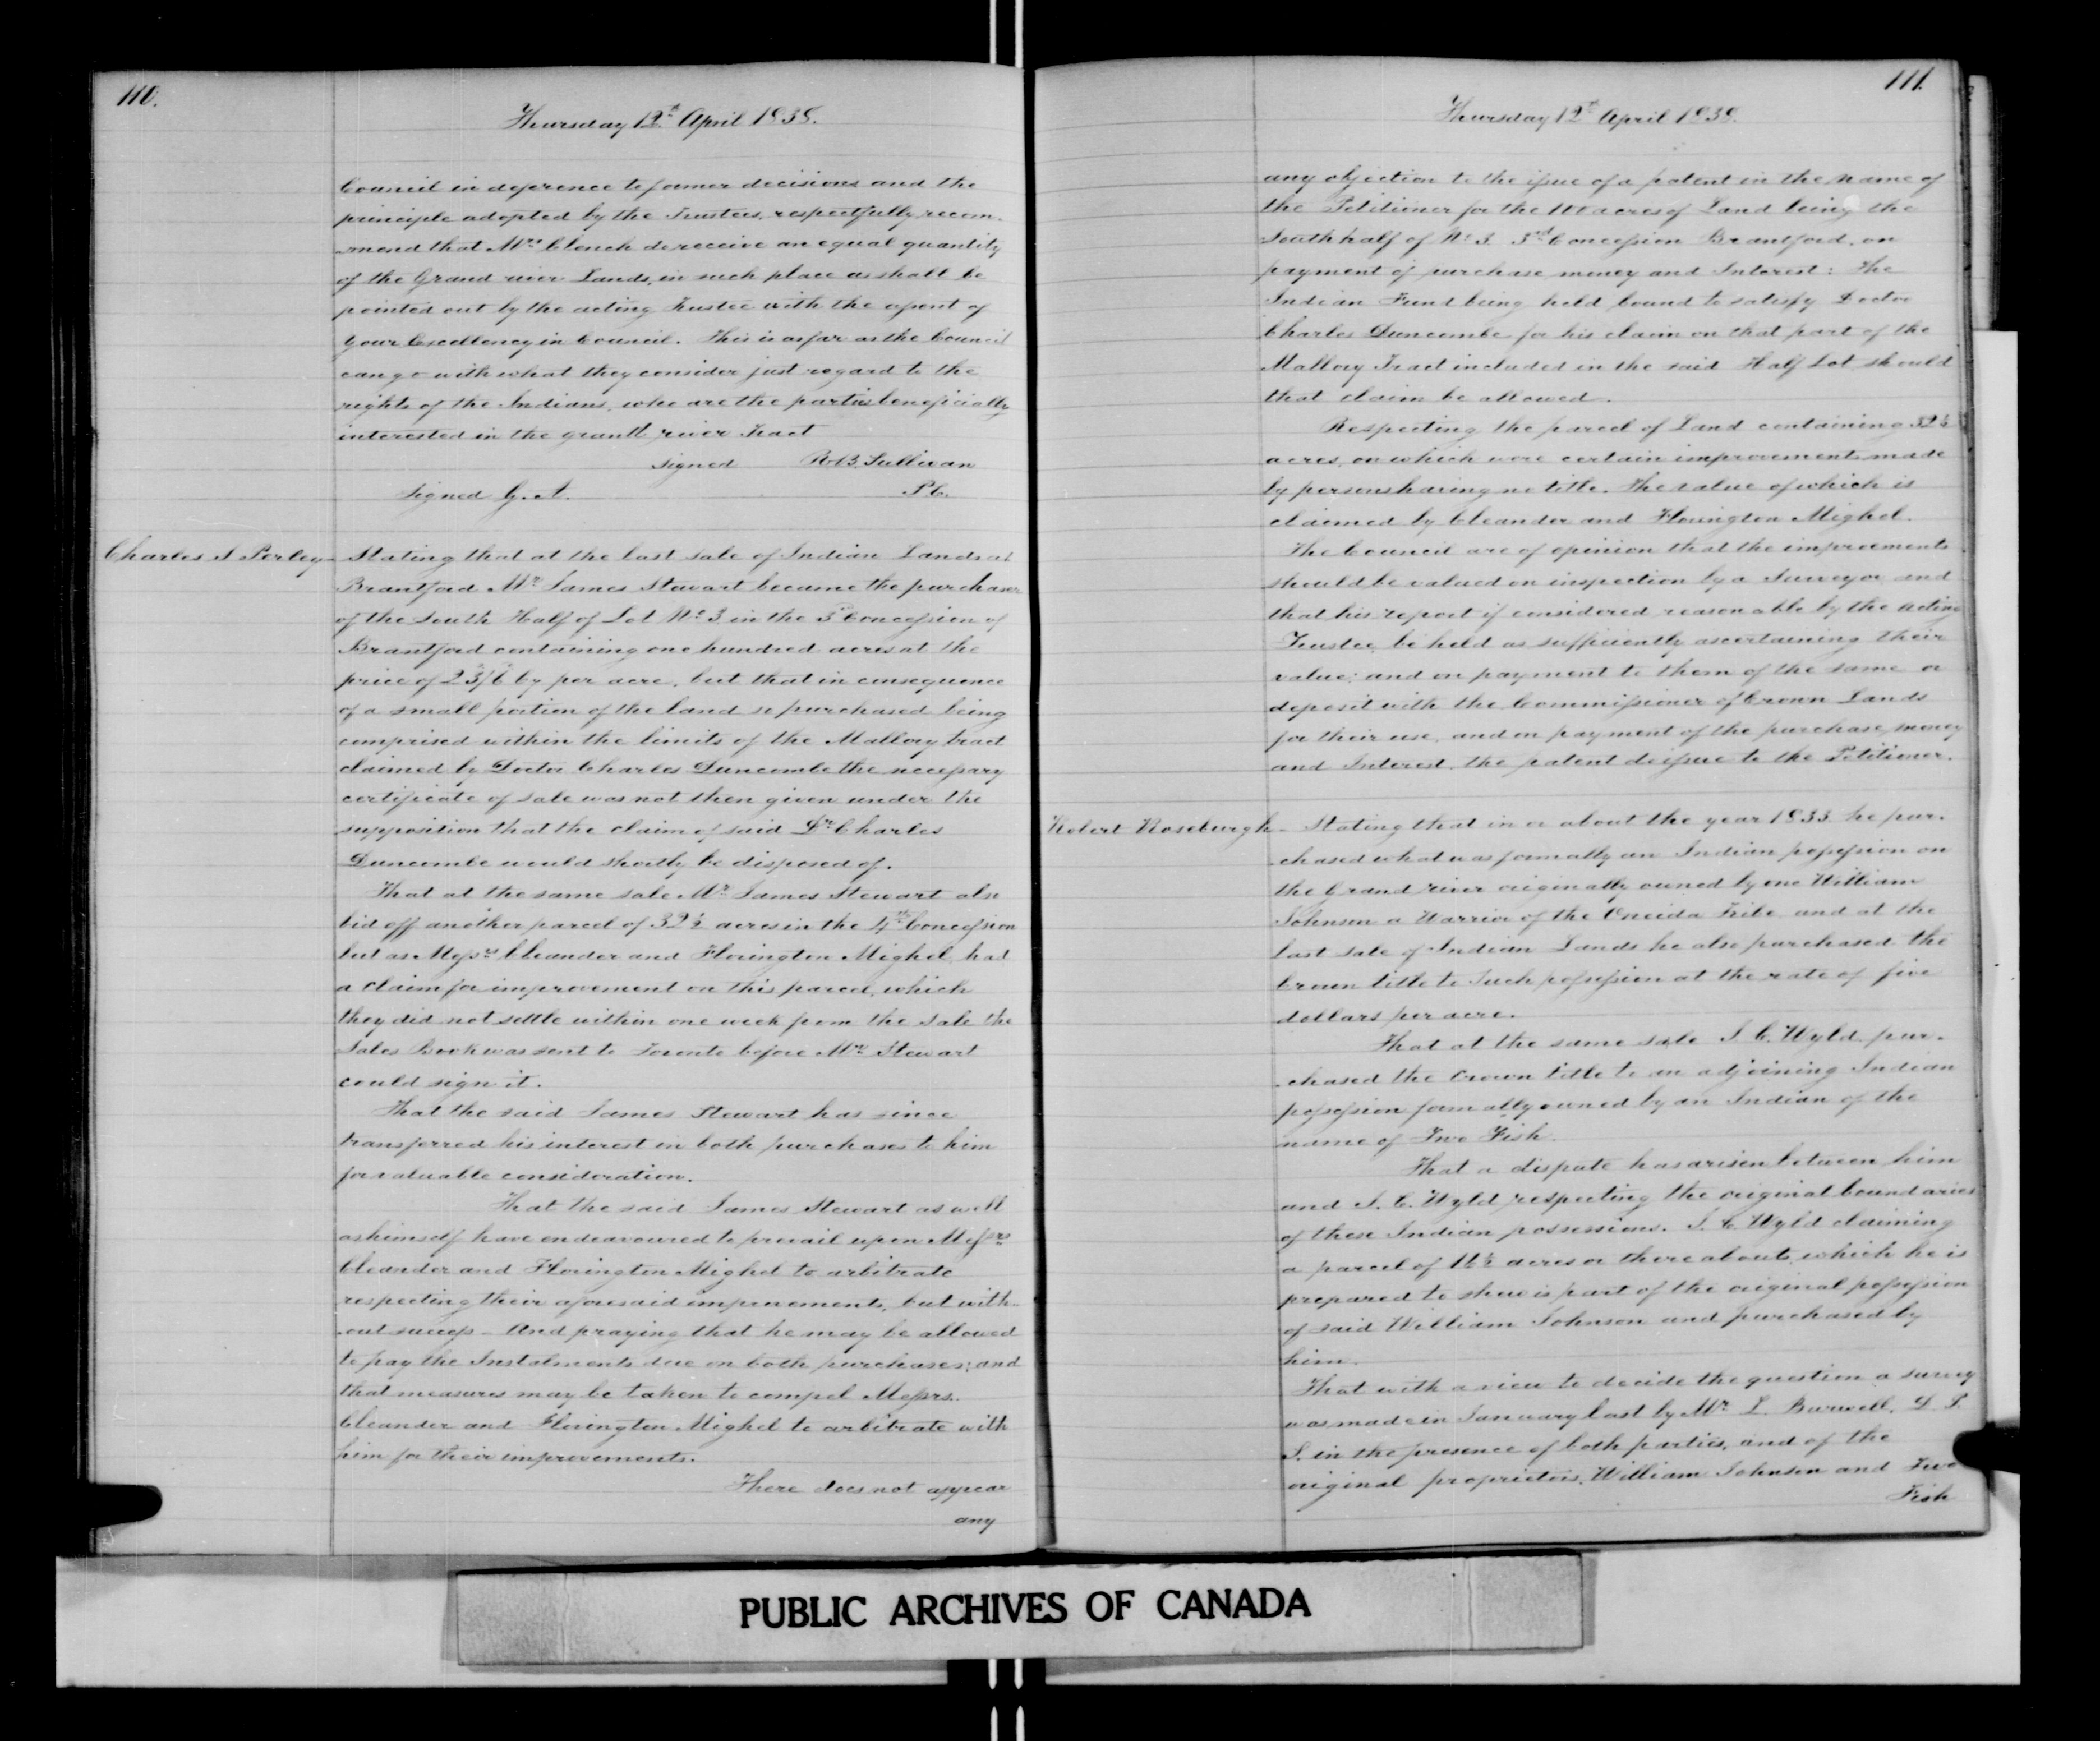 110.
Thursday 12th April 1838.
Council in deference to former decisions and the
principle adopted by the Trustees, respectfully recom-
-mend that Mrs Clench do receive an equal quantity
of the Grand river Lands, in such place as shall be
pointed out by the acting Trustee with the assent of
Your Excellency in Council. This is as far as the Council
can go with what they consider just regard to the
rights of the Indians, who are the parties beneficially
interested in the grand river Tract
signed R.B. Sullivan
Signed G.A. P.C.
Charles S Perley - Stating that at the last sale of Indian Lands at
Brantford Mr James Stewart became the purchaser
of the South Half of Lot No 3 in the 3d Concession of
Brantford containing one hundred acres at the
price of 23/6 Cy per acre, but that in consequence
of a small portion of the land so purchased being
comprised within the limits of the Mallory tract
claimed by Doctor Charles Duncombe the necessary
certificate of sale was not then given under the
supposition that the claim of said Dr Charles
Duncombe would shortly be disposed of.
That at the same sale Mr James Stewart also
bid off another parcel of 32½ acres in the 4th Concession
but as Messrs Cleander and Florington Mighel had
a claim for improvement on this parcel, which
they did not settle within one week from the sale the
Sales Book was sent to Toronto before Mr Stewart
could sign it.
That the said James Stewart has since
transferred his interest in both purchases to him
for valuable consideration.
That the said James Stewart as well
as himself have endeavoured to prevail upon Messrs
Cleander and Florington Mighel to arbitrate
respecting their aforesaid improvements, but with-
-out success - And praying that he may be allowed
to pay the Instalments due on both purchases; and
that measures may be taken to compel Messrs.
Cleander and Florington Mighel to arbitrate with
him for their improvements.
There does not appear
any
111.
Thursday 12th April 1838.
any objection to the issue of a patent in the name of
the Petitioner for the 100 acres of Land being the
South half of No 3. 3rd Concession Brantford, on
payment of purchase money and Interest: The
Indian Fund being held bound to satisfy Doctor
Charles Duncombe for his claim on that part of the
Mallory Tract included in the said Half Lot should
that claim be allowed.
Respecting the parcel of Land containing 32½
acres, on which were certain improvements made
by persons having no title. The value of which is
claimed by Cleander and Florington Mighel.
The Council are of opinion that the improvements
should be valued on inspection by a Surveyor and
that his report if considered reasonable by the acting
Trustee be held as sufficiently ascertaining their
value; and on payment to them of the same or
deposit with the Commissioner of Crown Lands
for their use, and on payment of the purchase money
and Interest, the patent do issue to the Petitioner.
Robert Roseburgh - Stating that in or about the year 1833 he pur-
-chased what was formally an Indian possession on
the Grand river originally owned by one William
Johnson a Warrior of the Oneida Tribe and at the
last sale of Indian Lands he also purchased the
Crown title to Such possession at the rate of five
dollars per acre.
That at the same sale J. C. Wyld pur-
-chased the Crown title to an adjoining Indian
possession formally owned by an Indian of the
name of Two Fish.
That a dispute has arisen between him
and J. C. Wyld respecting the original boundaries
of these Indian possessions. J. C. Wyld claiming
a parcel of 1½ acres or thereabouts, which he is
prepared to shew is part of the original possession
of said William Johnson and purchased by
him.
That with a view to decide the question a survey
was made in January last by Mr L. Burwell. D. P.
S. in the presence of both parties, and of the
original proprietors, William Johnson and Two
Fish
PUBLIC ARCHIVES OF CANADA